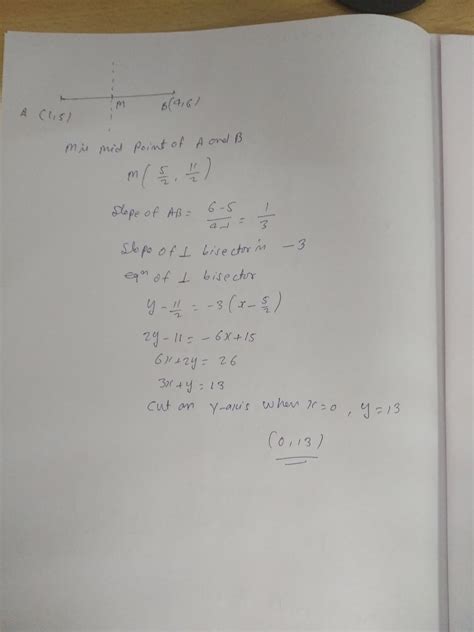 M
A (1,5) B(4,6)
M is mid point of A and B
M(5/2, 11/2)
Slope of AB = 6-5/4-1 = 1/3
Slope of ⊥ bisector is -3
eqⁿ of ⊥ bisector
y - 11/2 = -3(x - 5/2)
2y - 11 = -6x + 15
6x + 2y = 26
3x + y = 13
Cut an y-axis when x=0, y=13
(0,13)